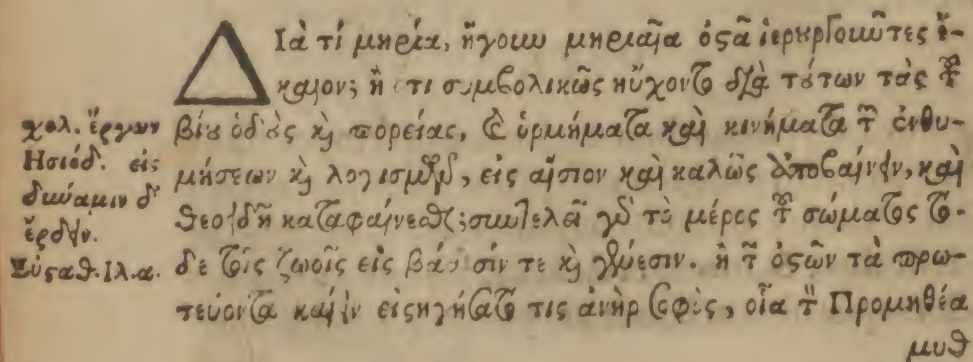 ΔΙὰ τί μηρία, ἤγουν μηριαῖα ὀστᾶ ἱερουργοῦντες ἔ-
καιον; ἢ ὅτι συμβολικῶς ηὔχοντο διὰ τούτων τὰς τοῦ
βίου ὁδοὺς καὶ πορείας, καὶ ὁρμήματα καὶ κινήματα τῶν ἐνθυ-
μήσεων καὶ λογισμῶν, εἰς αἴσιον καὶ καλῶς ἀποβαίνειν, καὶ
θεοειδῆ καταφαίνεσθαι; συντελεῖ γὰρ τὸ μέρος τοῦ σώματος τό-
δε τοῖς ζώοις εἰς βάσιν τε καὶ γένεσιν. ἢ τῶν ὀστῶν τὰ πρω-
τεύοντα καίειν εἰσηγήσατό τις ἀνὴρ σοφὸς, οἷα τὸν Προμηθέα
μυθ
χολ. ἔργων
Ησιόδ. εἰς
δύναμιν δ'
ἔρδειν.
Εὐσταθ. Ιλ. α.